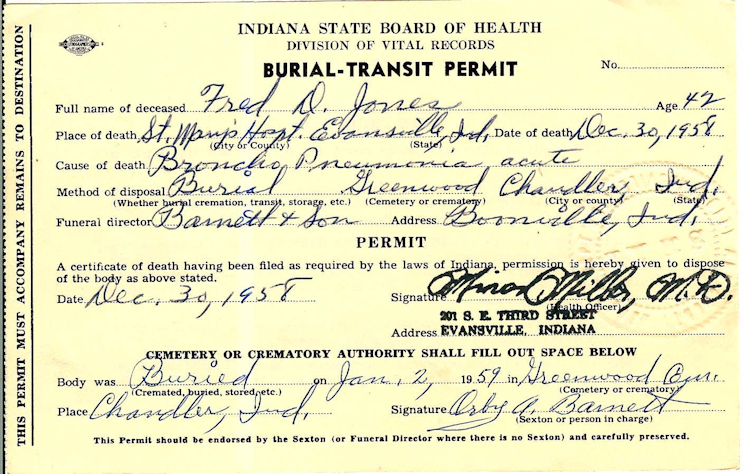 INDIANA STATE BOARD OF HEALTH
DIVISION OF VITAL RECORDS
BURIAL-TRANSIT PERMIT
No.
Full name of deceased Fred D. Jones Age 42
Place of death St. Mary's Hospt. Evansville, Ind. Date of death Dec. 30, 1958
(City or County) (State)
Cause of death Broncho Pneumonia, acute
Method of disposal Burial Greenwood Chandler, Ind.
(Whether burial cremation, transit, storage, etc.) (Cemetery or crematory) (City or county) (State)
Funeral director Barnett & Son Address Boonville, Ind.
PERMIT
A certificate of death having been filed as required by the laws of Indiana, permission is hereby given to dispose
of the body as above stated.
Date Dec. 30, 1958 Signature Minor Miller, M.D.
(Health Officer)
201 S. E. THIRD STREET
Address EVANSVILLE, INDIANA
CEMETERY OR CREMATORY AUTHORITY SHALL FILL OUT SPACE BELOW
Body was Buried on Jan. 2, 1959 in Greenwood Cem.
(Cremated, buried, stored, etc.) (Cemetery or crematory)
Place Chandler, Ind. Signature Orby A. Barnett
(Sexton or person in charge)
This Permit should be endorsed by the Sexton (or Funeral Director where there is no Sexton) and carefully preserved.
THIS PERMIT MUST ACCOMPANY REMAINS TO DESTINATION